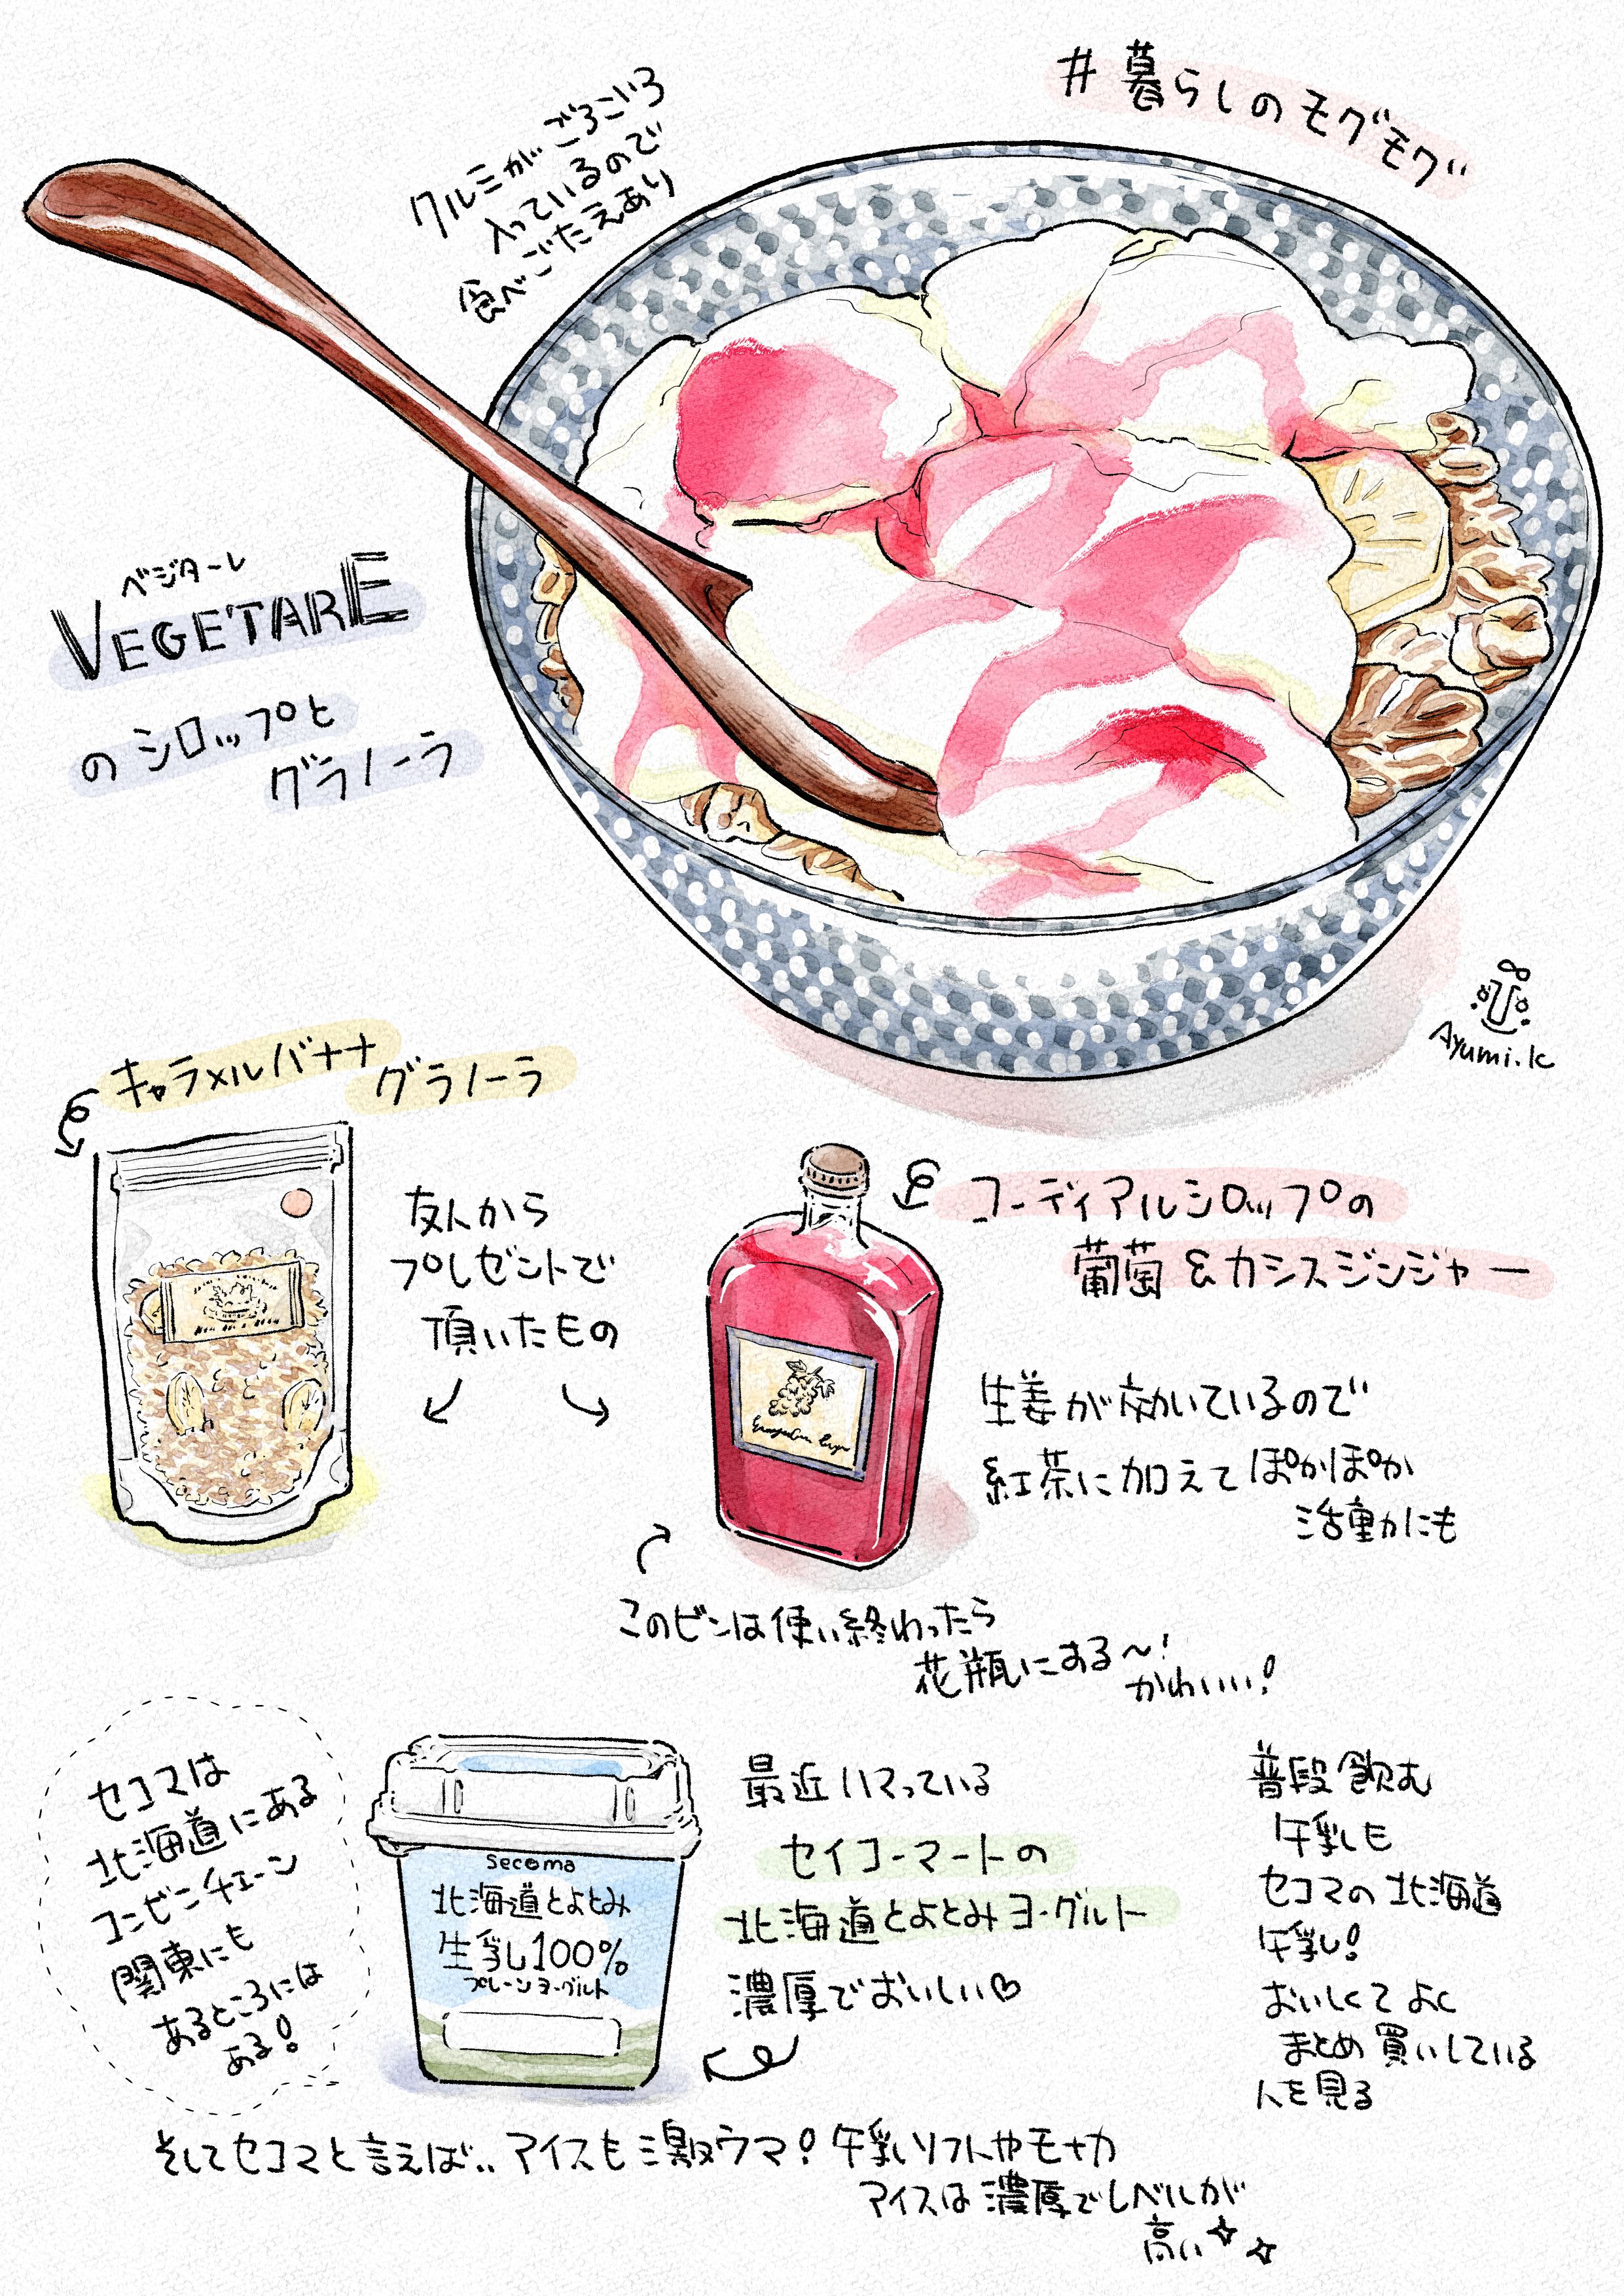 #暮らしのモグモグ
クルミがごろごろ
入っているので
食べごたえあり
ベジターレ
VEGETARE
のシロップと
グラノーラ
Ayumi.K
キャラメルバナナ
グラノーラ
友人から
プレゼントで
頂いたもの
コーディアルシロップの
葡萄&カシスジンジャー
生姜が効いているので
紅茶に加えてぽかぽか
活動にも
このビンは使い終わったら
花瓶にする〜!
かわいい!
セコマは
北海道にある
コンビニチェーン
関東にも
あるところには
ある!
Secoma
北海道とよとみ
生乳100%
プレーンヨーグルト
最近ハマっている
セイコーマートの
北海道とよとみヨーグルト
濃厚でおいしい♡
普段飲む
牛乳も
セコマの北海道
牛乳!
おいしくてよく
まとめ買いしている
人を見る
そしてセコマと言えば..アイスも激ウマ!牛乳ソフトやモナカ
アイスは濃厚でレベルが
高い